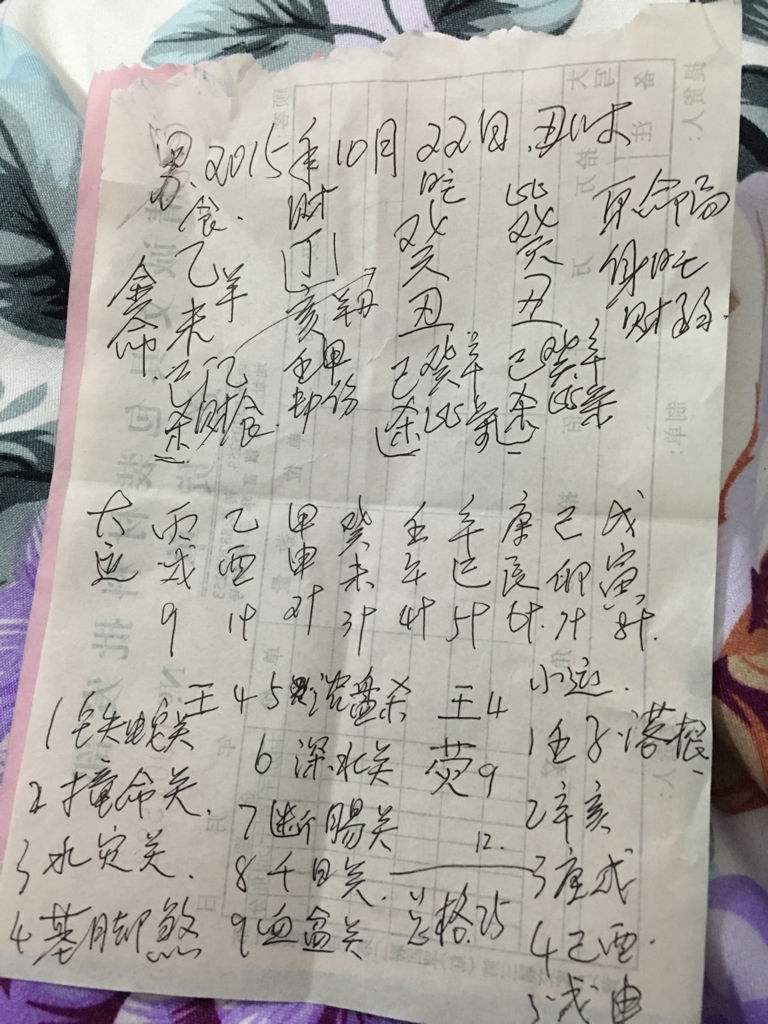 男.2015年10月22日.丑时
食 财 旺 比
乙 丁 癸 癸 原命局
金命 未 羊 亥 丑 丑 身旺
财弱
己丁乙 壬甲 己癸辛 己癸辛
杀财食 劫伤 杀比枭 杀比枭
大运 丙戌 乙酉 甲申 癸未 壬午 辛巳 庚辰 己卯 戊寅
9 1十 2十 3十 4十 5十 6十 7十 8十.
小运.
王4
1壬子.落根
2撞命关.
6深水关
荧9
2辛亥
3水灾关.
7断肠关
12.
3庚戌
8千日关.
总格.25
4基脚煞
9血盆关
4己酉.
5戊申